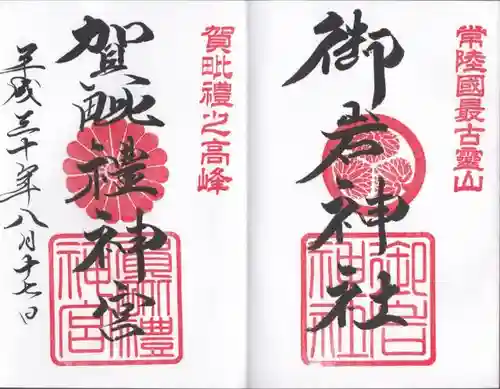 常陸國最古霊山
御岩神社
御岩神社
賀毗禮之高峰
賀毗禮神宮
賀毗禮神宮
平成三十年八月十七日